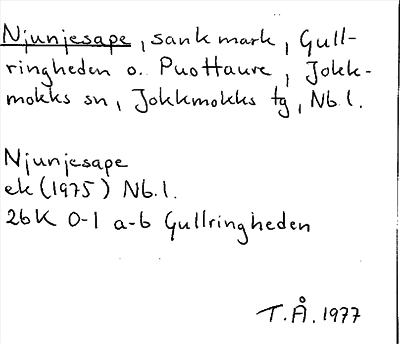 Njunjesape, sank mark, Gull-
ringheden o. Puottaure, Jokk-
mokks sn, Jokkmokks tg, Nb.l.
Njunjesape
ek (1975) Nb.l.
26K 0-1 a-b Gullringheden
T.Å. 1977